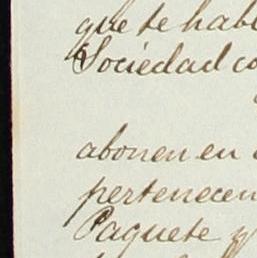 que se hab
Sociedad co
abonen en
pertenecen
Paquete y